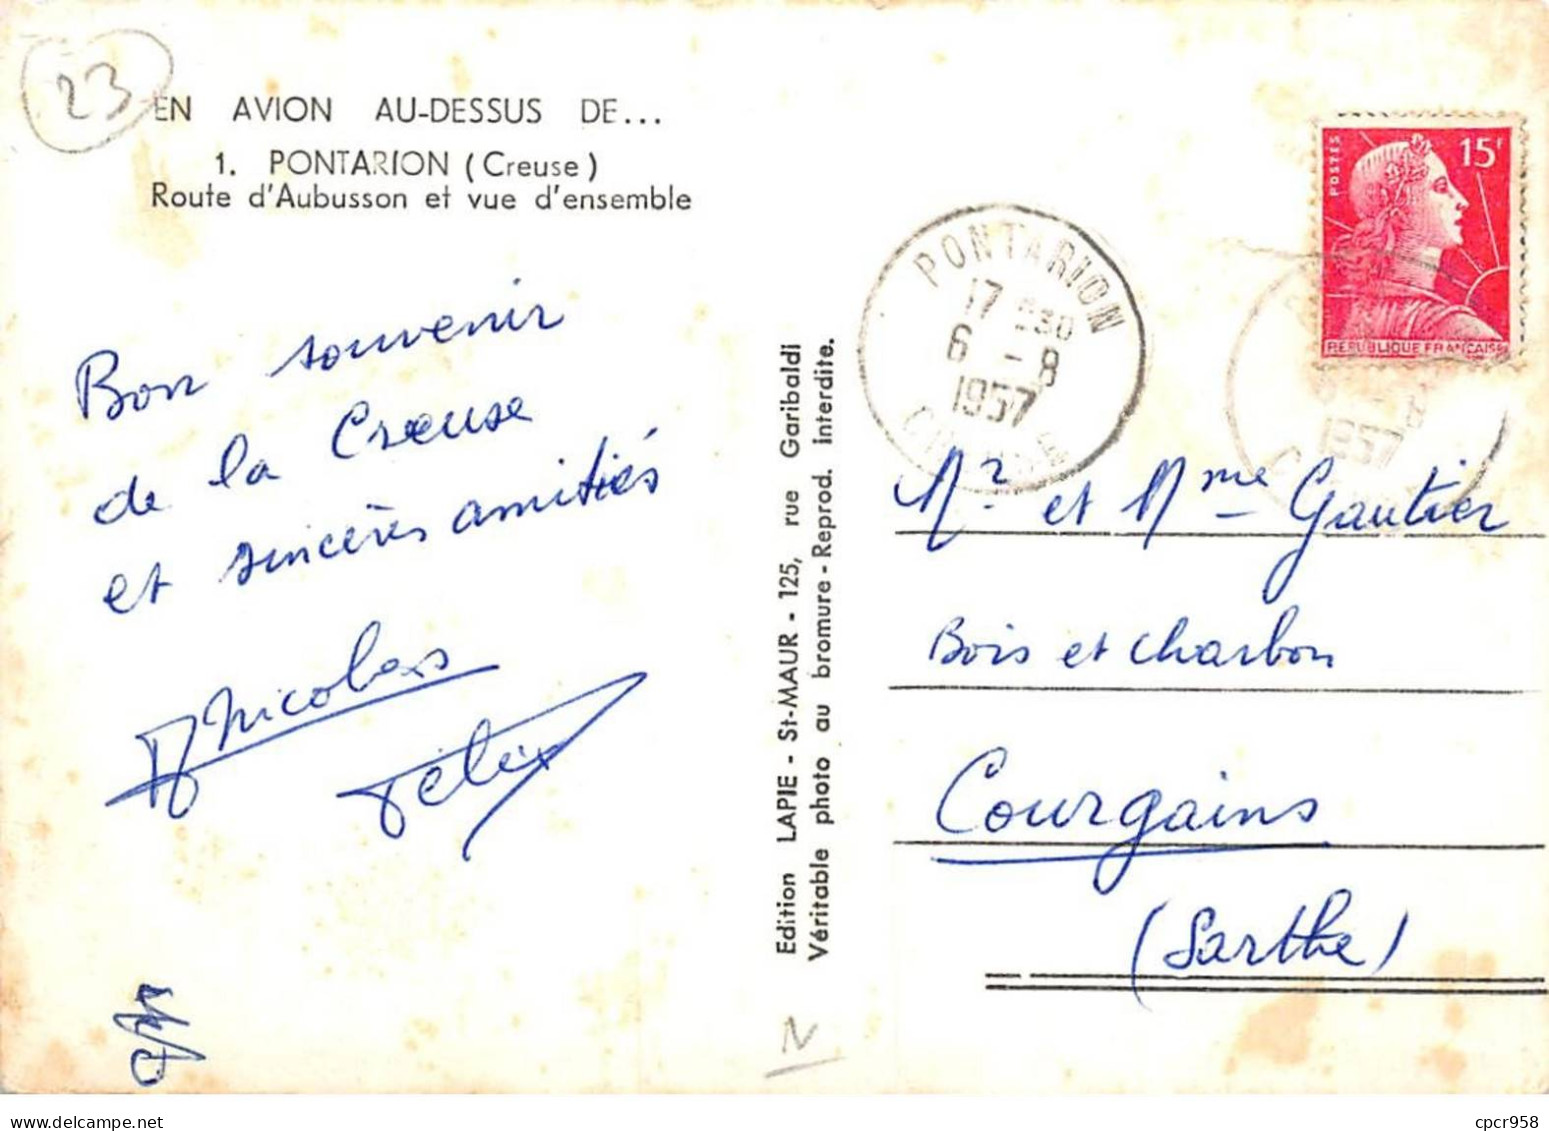 23
EN AVION AU-DESSUS DE...
1. PONTARION (Creuse)
Route d'Aubusson et vue d'ensemble
Bon souvenir
de la Creuse
et sincères amitiés
Nicolas
Félix
Edition LAPIE - St-MAUR - 125, rue Garibaldi
Véritable photo au bromure - Reprod. interdite.
PONTARION
17 H30
6 - 8
1957
CREUSE
POSTES
15F
REPUBLIQUE FRANÇAISE
8
1957
Mr et Mme Gautier
Bois et charbon
Courgains
(Sarthe)
N
www.delcampe.net
cpcr958